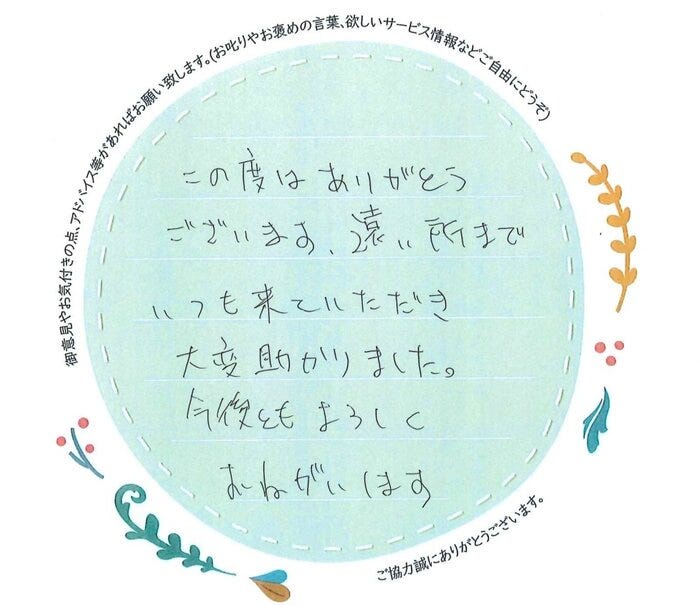 御意見やお気付きの点、アドバイス等があればお願い致します。(お叱りやお褒めの言葉、欲しいサービス情報などご自由にどうぞ)
この度はありがとう
ございます、遠い所まで
いつも来ていただき
大変助かりました。
今後ともよろしく
おねがいします
ご協力誠にありがとうございます。